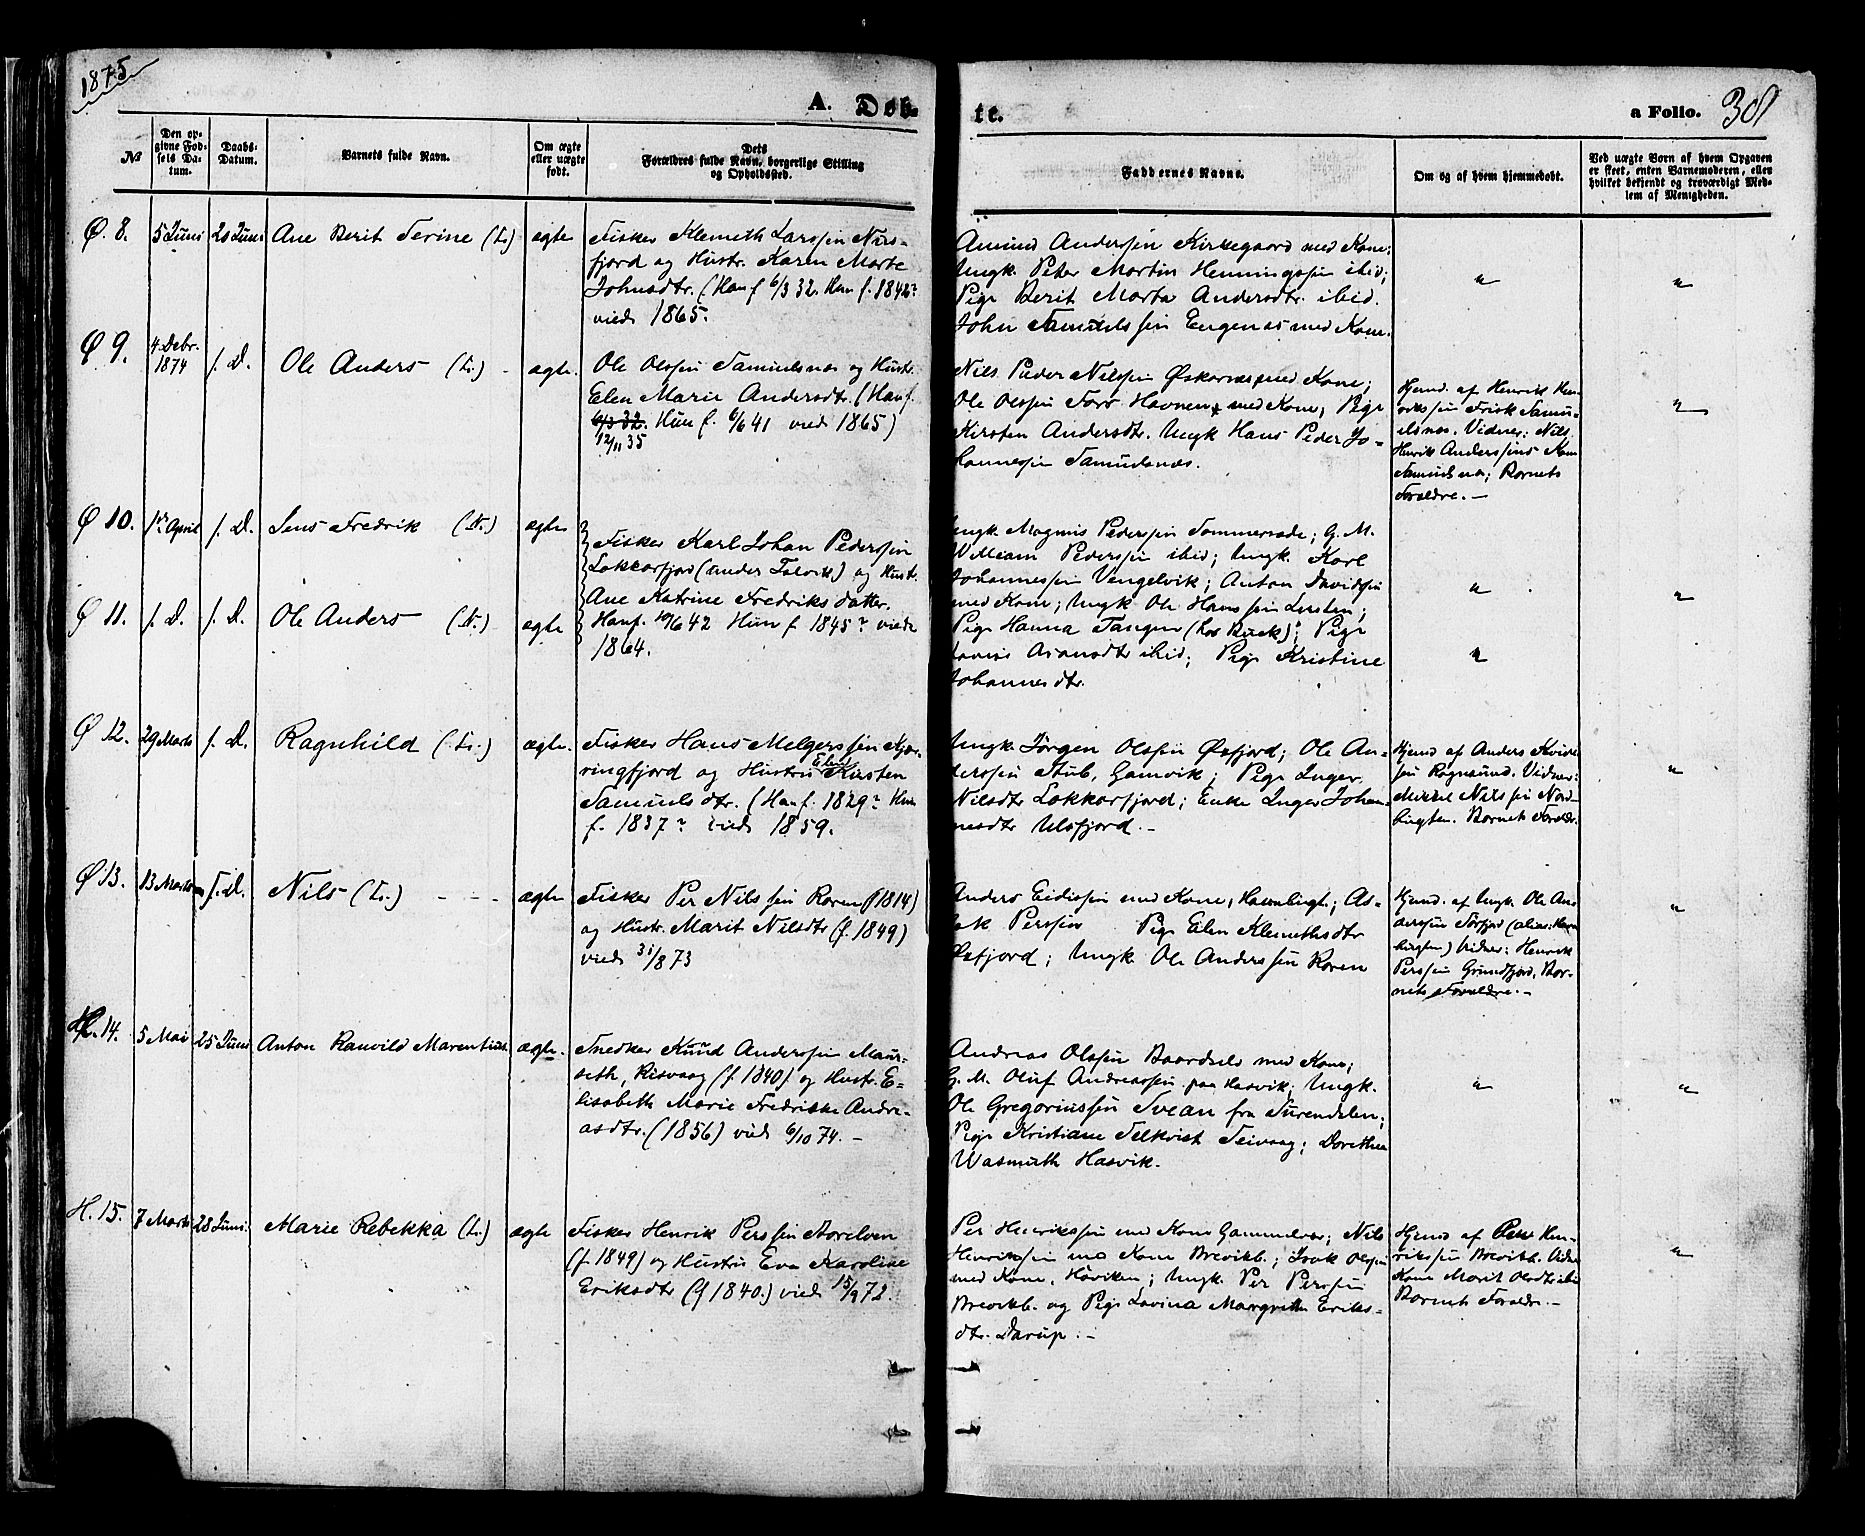 1875
A. Døb-
te.
a Folio. 38
№
Den op-
givne Fød-
sels Da-
tum.
Daabs-
Datum.
Barnets fulde Navn.
Om ægte
eller uægte
født.
Dets
Forældres fulde Navn, borgerlige Stilling
og Opholdssted.
Faddernes Navne.
Om og af hvem hjemmedøbt.
Ved uægte Børn af hvem Opgaven
er skeet, enten Barnemoderen, eller
hvilket bekjendt og troværdigt Med-
lem af Menigheden.
Ø. 8. 5 Juni 20 Juni Ane Berit Serine (L.) ægte
Fisker Klemeth Larssen Nus-
fjord og Hustr. Karen Marte
Johnsdtr. (Han f. 6/3 32. Hun f. 1842?
viede 1865.
Amund Anderssen Kirkegaard med Kone;
Ungk. Peter Martin Henningssen ibid;
Pige Berit Marta Andersdtr. ibid.
John Samuelssen Eugenes med Kone.
"
"
Ø 9. 4 Debr. 1874 s. D. Ole Anders (L.) - ægte.
Ole Olssen Samuelsnes og Hustr.
Elen Marie Andersdtr. (Han f.
6/3 32. Hun f. 6/6 41 viede 1865)
12/11 35
Nils Peder Nilssen Øskarnes med Kone;
Ole Olssen Havnen med Kone; Pige
Kirsten Andersdtr. Ungk Hans Peder Jo-
hannessen Samuelsnes.
Hjemd. af Henrik Hen-
rikssen Frisk Samu-
elsnes. Vidner: Nils
Henrik Anderssens Kone
Samuelsnes; Barnets
Forældre. -
"
Ø 10. 1ste April s. D. Jens Fredrik (N.) ægte
Fisker Karl Johan Pederssen
Lokkarfjord (under Talvik) og Hust.
Ane Katrine Fredriks datter.
Han f. 10/6 42 Hun f 1845? viede
1864.
Ungk. Magnus Pederssen Sommersæde; G. M.
William Pederssen ibid; Ungk. Karl
Johannessen Vengelvik; Anton Davidsen
med Kone; Ungk Ole Hanssen Lersten;
Pige Hanna Tangen (hos Buck); Pige
ibid; Pige Kristine
Johannesdtr.
"
"
Ø 11. s. D. s. D. Ole Anders (N.) ægte
"
Ø 12. 29 Marts s. D. Ragnhild (L.) ægte.
Fisker Hans Melgerssen Kjær-
ringfjord og Hustru Elen Kirsten
Samuelsdtr. (Han f. 1829? Hun
f. 1837? viede 1859.
Ungk. Jørgen Olssen Øxfjord; Ole An-
derssen Stub, Gamvik; Pige Inger
Nilsdtr Lokkarfjord; Enke Inger Johan-
nesdtr Ulsfjord. -
Hjemd af Anders
ssen Rognsund. Vidner:
Mikkel Nilssen Nord-
bugten. Barnets Foreldr.
"
Ø 13. 13 Marts s. D. Nils (L.) - - - ægte
Fisker Per Nilssen Roren (f 1814)
og Hustr. Marit Nilsdtr (f. 1849)
viede 31/8 73
Anders med Kone, Havnbugt.; As-
lak Perssen Pige Elen Klemethsdtr
Øxfjord; Ungk Ole Anderssen Roren
Hjemd. af Ungk. Ole An-
derssen
bugten) Vidner: Henrik
Perssen Grundfjord, Bar-
nets Forældre. -
"
H. 14. 5 Mai 25 Juni Anton Ranvild Marentius. ægte.
Snedker Knud Anderssen Maur-
seth, Risvaag (f 1840) og Hustr. E-
lisabeth Marie Fredrikke Andre-
asdtr. (1856) viede 6/10 74. -
Andreas Olssen Baardsels med Kone;
G. M. Oluf Andreassen paa Hasvik; Ungk.
Ole Gregoriussen Svean fra Surendalen;
Pige Kristiane Selkvist Seivaag; Dorethea
Wasmuth Hasvik.
"
"
H. 15. 7 Marts 28 Juni. Marie Rebekka (L.) ægte
Fisker Henrik Perssen Storelven
(f 1849) og Hustru Eva Karoline
Eriksdtr (f 1840.) viede 15/9 72.
Per Henrikssen med Kone Gammelvær; Nils
Henrikssen med Kone Brevikb.; Isak Olssen
med Kone, Høviken; Ungk. Per Perssen
Brevikb. og Pige Lovina Margrethe Eriks-
dtr. Darup. -
Hjemd af Peter Hen-
rikssen Brevikb. Vidner
Kone Marit Olsdtr ibid
Barnets Foreldre. -
"